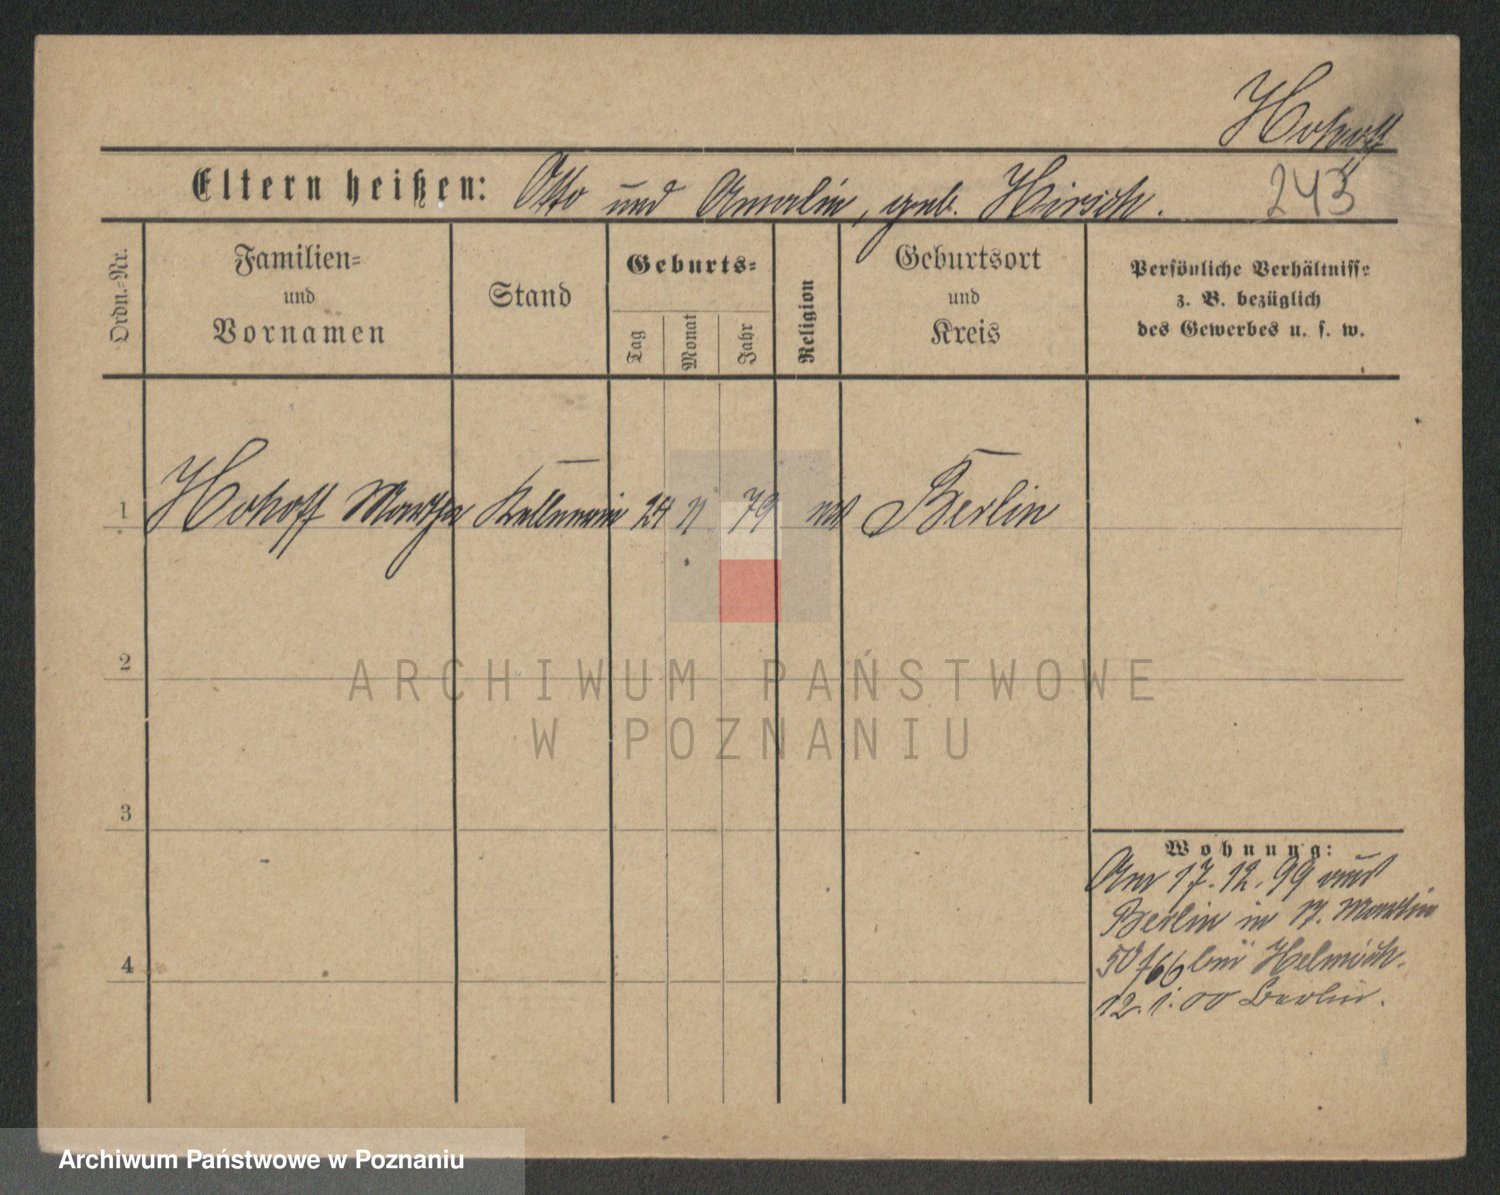 Hokoff
Eltern heißen: Otto und Amalie, geb. Hirsch.
243
Ordn.-Nr.
Familien-
und
Vornamen
Stand
Geburts-
Tag
Monat
Jahr
Religion
Geburtsort
und
Kreis
Persönliche Verhältnisse
z. B. bezüglich
des Gewerbes u. s. w.
1 Hokoff Martha Kellnerin 24 11 79 ev Berlin
2
ARCHIWUM PAŃSTWOWE
W POZNANIU
3
Wohnung:
Am 17.12.99 aus
Berlin in St. Martin
50/66 bei Helmich.
4
12.1.00 Berlin.
Archiwum Państwowe w Poznaniu